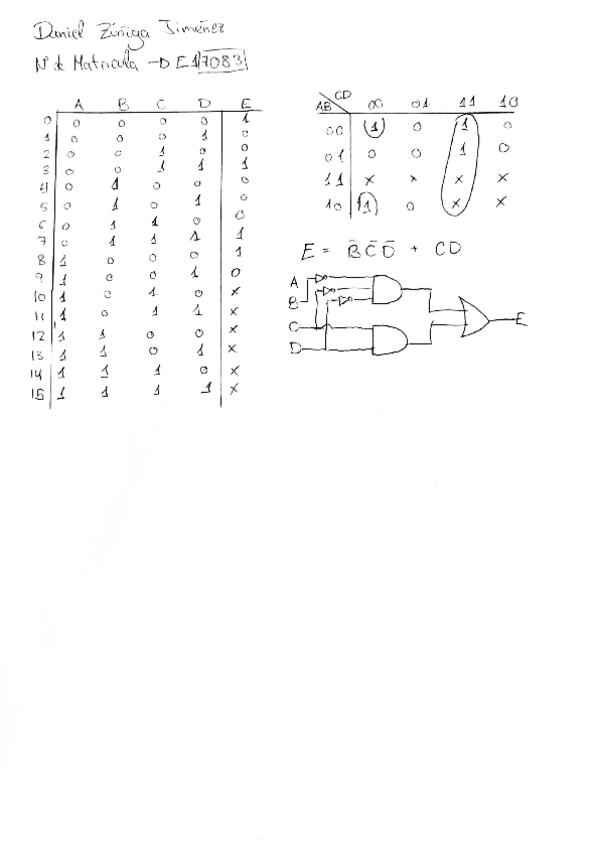 Daniel Zúñiga Jiménez
Nº de Matricula - DE17083
A B C D E
0 0 0 0 0 1
1 0 0 0 1 0
2 0 0 1 0 0
3 0 0 1 1 1
4 0 1 0 0 0
5 0 1 0 1 0
6 0 1 1 0 0
7 0 1 1 1 1
8 1 0 0 0 1
9 1 0 0 1 0
10 1 0 1 0 x
11 1 0 1 1 x
12 1 1 0 0 x
13 1 1 0 1 x
14 1 1 1 0 x
15 1 1 1 1 x
AB CD 00 01 11 10
00 1 0 1 0
01 0 0 1 0
11 x x x x
10 1 0 x x
E = B̄ C̄ D̄ + CD
A
B
C
D
E